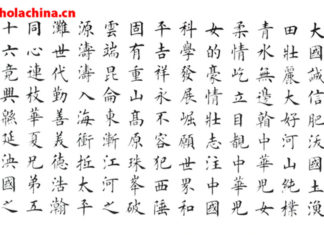 大國誠信肥沃國土樸
田壯麗誠大好河山純
青水壯無邊翰好中華兒女
柔情屹立目親中華兒
女的豪情壯志注中國
科學發展崛願世界和
平吉祥永不容西思
固有重山高原珠峯破
雲端昆侖東漸江河
源濤濤入海衝抵太平
灘世代勤善美德浩瀚
同心連枝華夏兄弟五
十六竞興繇延泱國之